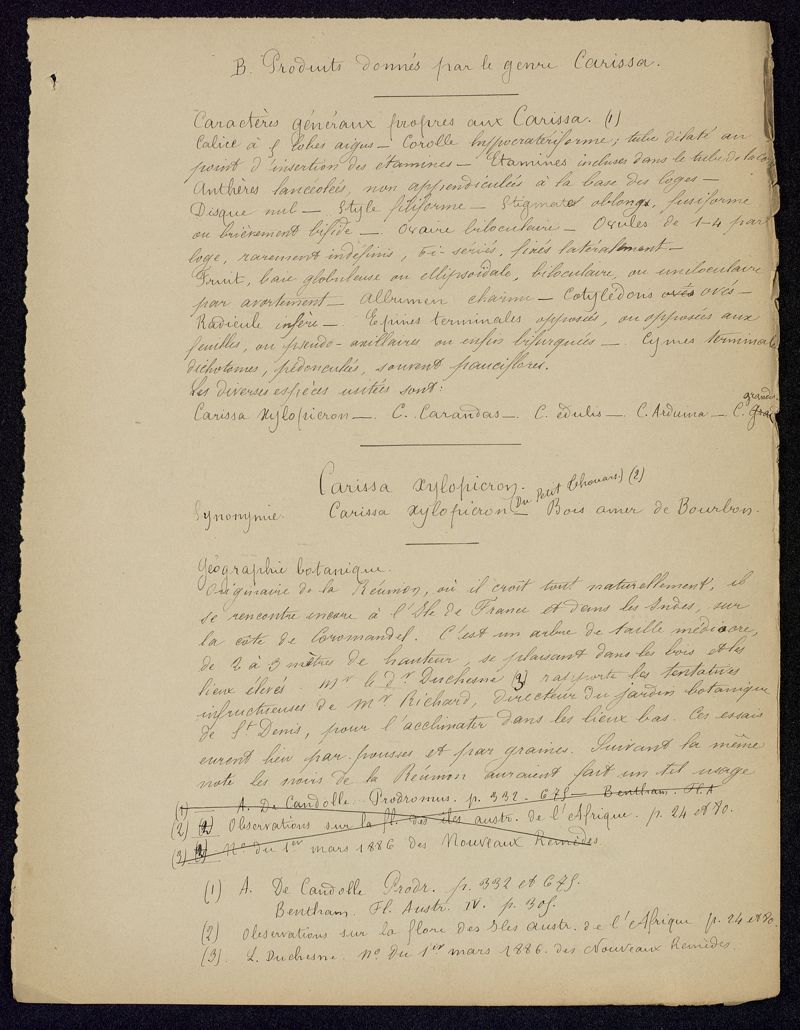 B. Produits donnés par le genre Carissa.
Caractères généraux propres aux Carissa. (1)
Calice à 5 lobes aigus — Corolle hypocratériforme; tube dilaté au
point d'insertion des étamines — Etamines incluses dans le tube de la co
Anthères lancéolées, non appendiculées à la base des loges —
Disque nul — Style filiforme — Stigmates oblongs, fusiforme
ou brièvement bifide — Ovaire biloculaire — Ovules de 1-4 par
loge, rarement indéfinis, bi-sériés, fixés latéralement —
Fruit, baie globuleuse ou ellipsoïdale, biloculaire, ou uniloculaire
par avortement — Albumen charnu — Cotylédons ovés ovés —
Radicule infère — Epines terminales opposées, ou opposées aux
feuilles, ou pseudo-axillaires ou enfin bifurquées — Cymes terminale
dichotomes, pédonculées, souvent pauciflores.
Les diverses espèces usitées sont:
Carissa Xylopicron — C. Carandas — C. edulis — C. Arduina — C. grandis
Carissa Xylopicron.
Synonymie. Carissa Xylopicron (Du Petit Thouars) (2) — Bois amer de Bourbon.
Géographie botanique.
Originaire de la Réunion, où il croît tout naturellement, il
se rencontre encore à l'Ile de France et dans les Indes, sur
la côte de Coromandel. C'est un arbre de taille médiocre,
de 2 à 3 mètres de hauteur, se plaisant dans les bois et les
lieux élevés. Mr le Dr Duchesne (3) rapporte les tentatives
infructueuses de Mr Richard, directeur du jardin botanique
de St Denis, pour l'acclimater dans les lieux bas. Ces essais
eurent lieu par pousses et par graines. Suivant la même
note les noirs de la Réunion auraient fait un tel usage
(1) A. De Candolle Prodromus. p. 332. 675 — Bentham. Fl. A
(2) (2) Observations sur la fl. des îles austr. de l'Afrique. p. 24 et 80.
(3) No du 1er mars 1886 des Nouveaux Remèdes
(1) A. De Candolle Prodr. p. 332 et 675.
Bentham. Fl. Austr. IV. p. 305.
(2) Observations sur la flore des Iles austr. de l'Afrique p. 24 et 80.
(3) L. Duchesne. No du 1er mars 1886. des Nouveaux Remèdes.